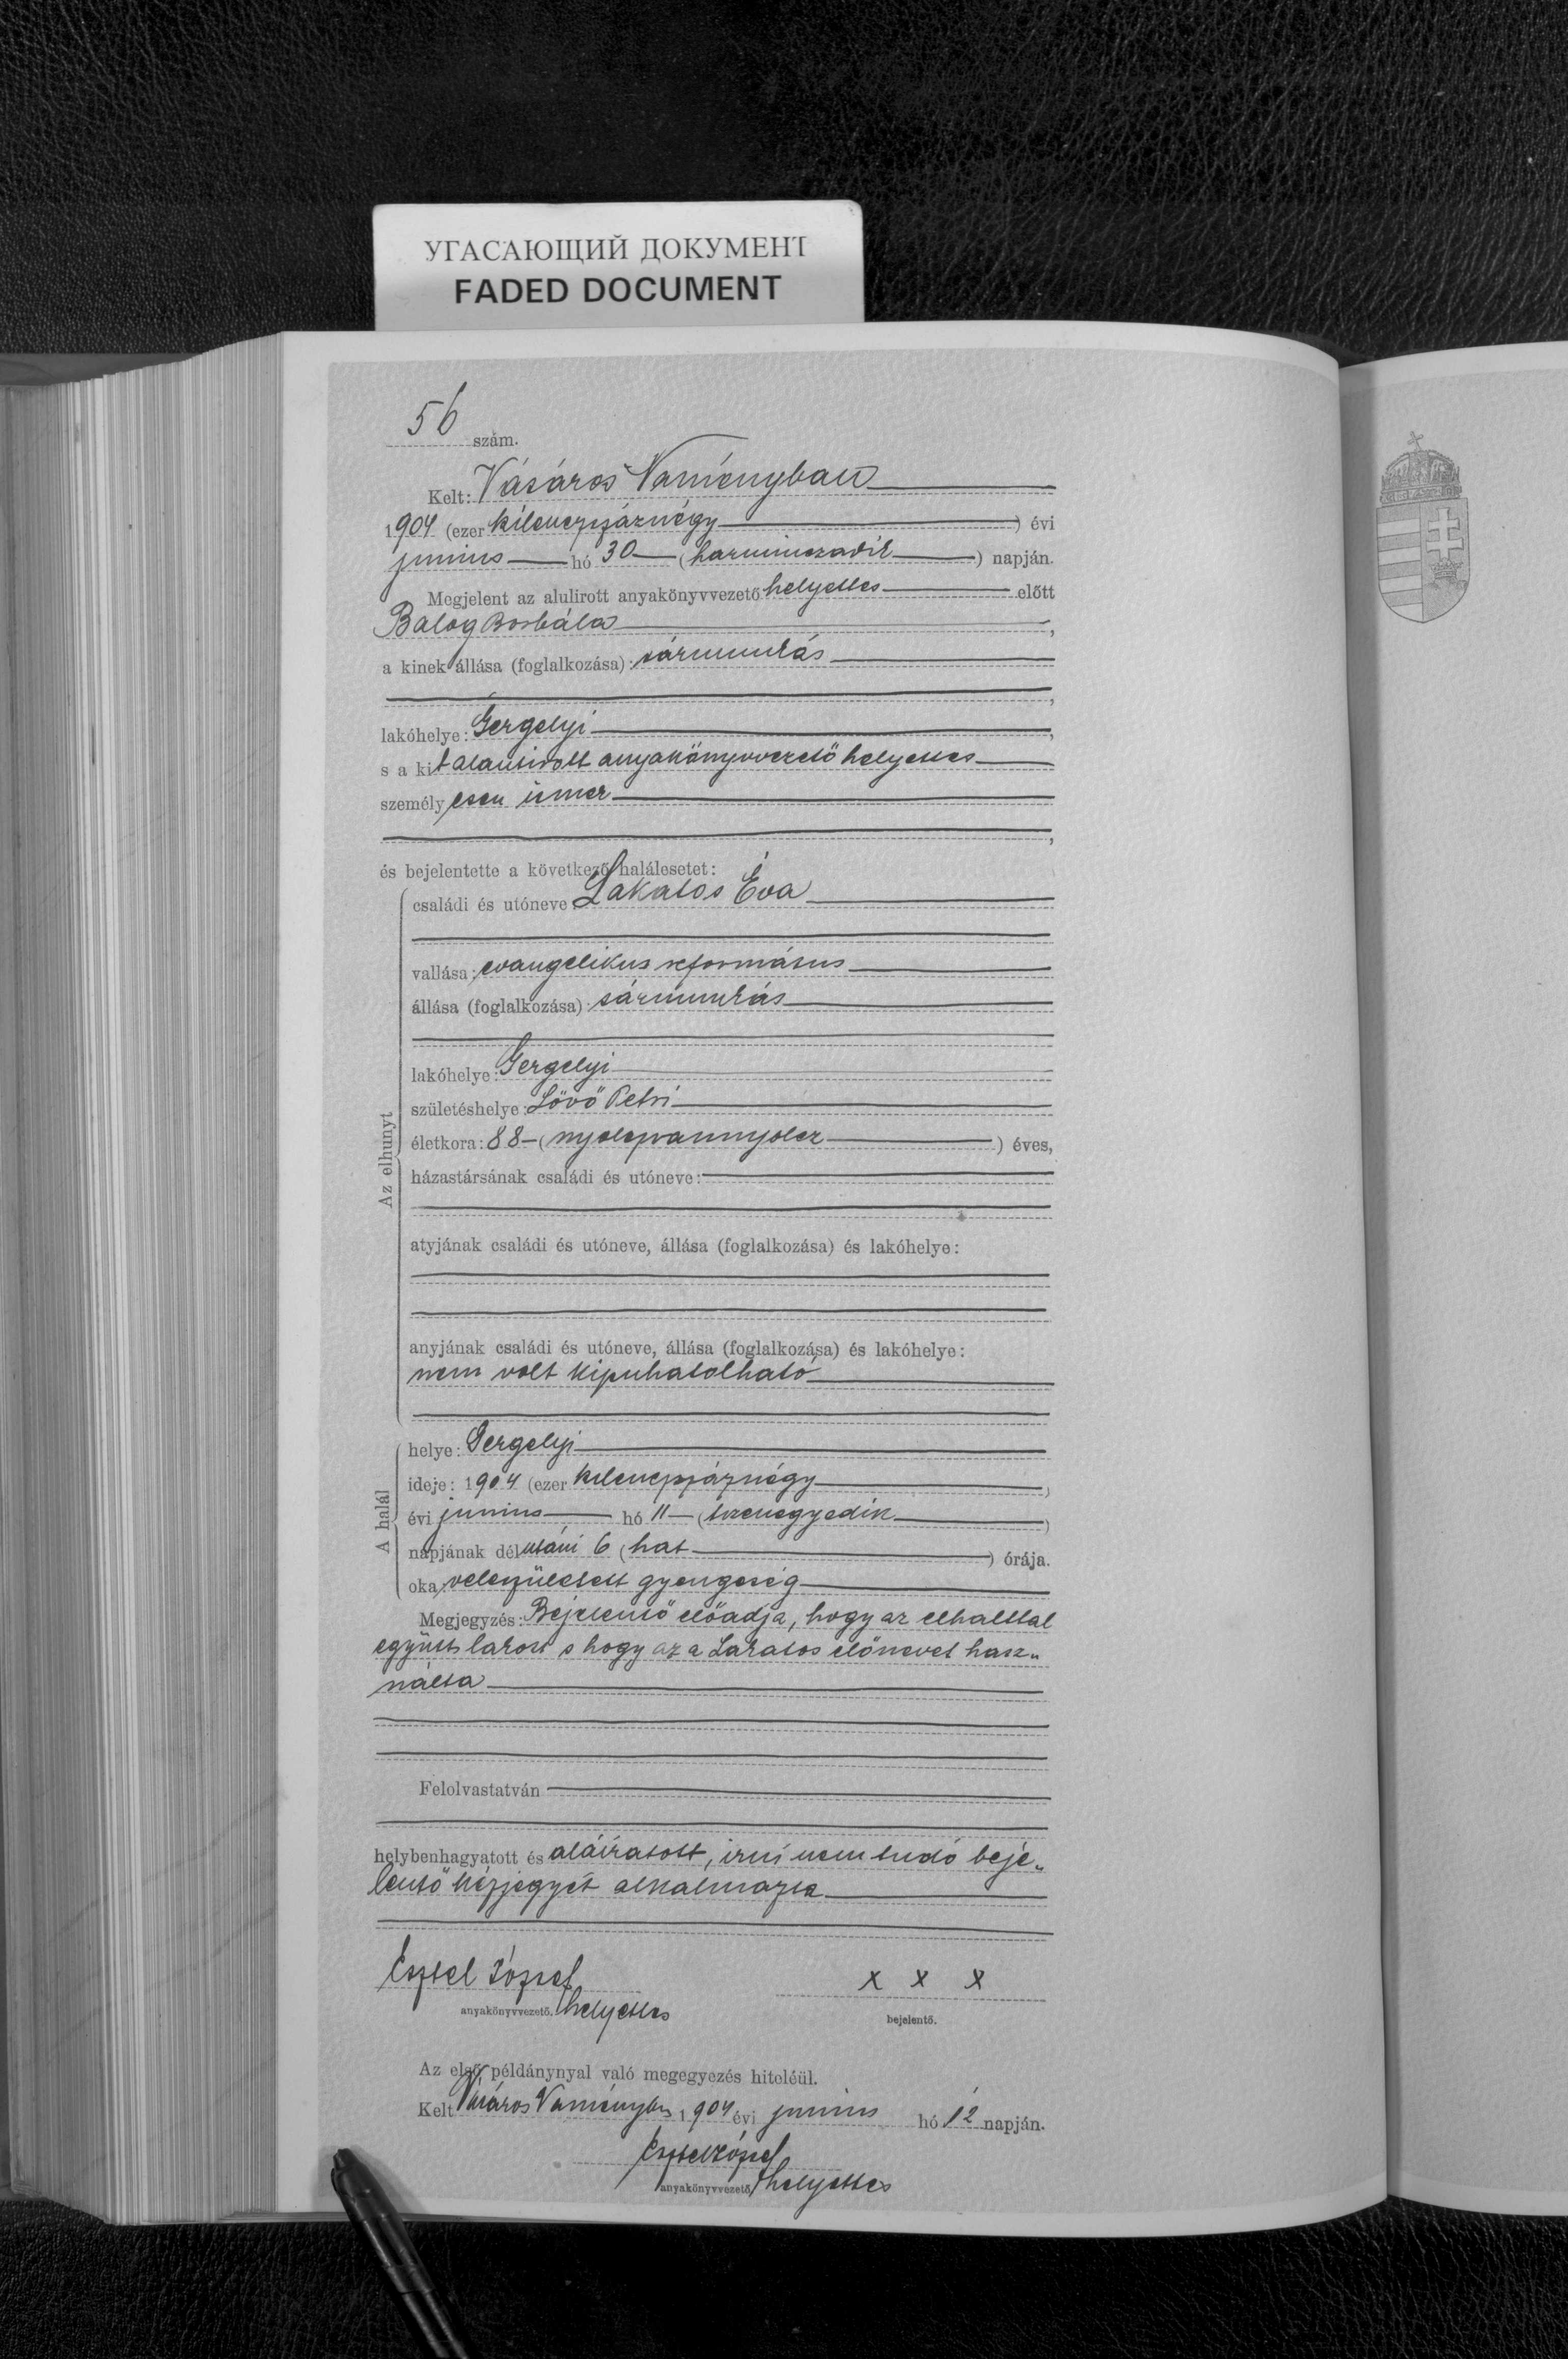 УГАСАЮЩИЙ ДОКУМЕНТ
FADED DOCUMENT
56 szám.
Kelt: Vásáros Naményban
1904 (ezer kilenczszáznégy) évi
junius hó 30 (harminczadik) napján.
Megjelent az alulirott anyakönyvvezető helyettes előtt
Balog Borbála,
a kinek állása (foglalkozása): sármunkás
,
lakóhelye: Gergelyi,
s a kit alantirott anyakönyvvezető helyettes
személyesen ismer
,
és bejelentette a következő halálesetet:
Az elhunyt
családi és utóneve Lakatos Éva
vallása: evangelikus református
állása (foglalkozása): sármunkás
lakóhelye: Gergelyi
születéshelye: Lövő Petri
életkora: 88 (nyolczvannyolcz) éves,
házastársának családi és utóneve:
atyjának családi és utóneve, állása (foglalkozása) és lakóhelye:
anyjának családi és utóneve, állása (foglalkozása) és lakóhelye:
nem volt kipuhatolható
A halál
helye: Gergelyi
ideje: 1904 (ezer kilenczszáznégy)
évi junius hó 11 (tizenegyedik)
napjának délutáni 6 (hat) órája.
oka: veleszületett gyengeség
Megjegyzés: Bejelentő előadja, hogy az elhalttal
együtt lakott s hogy az a Lakatos előnevet hasz„
nálta
Felolvastatván
helybenhagyatott és aláiratott, irni nem tudó beje„
lentő kézjegyét alkalmazta
József
anyakönyvvezető. helyettes
x x x
bejelentő.
Az első példánynyal való megegyezés hiteléül.
Kelt Vásáros Naményban 1904 évi junius hó 12 napján.
József
anyakönyvvezető helyettes